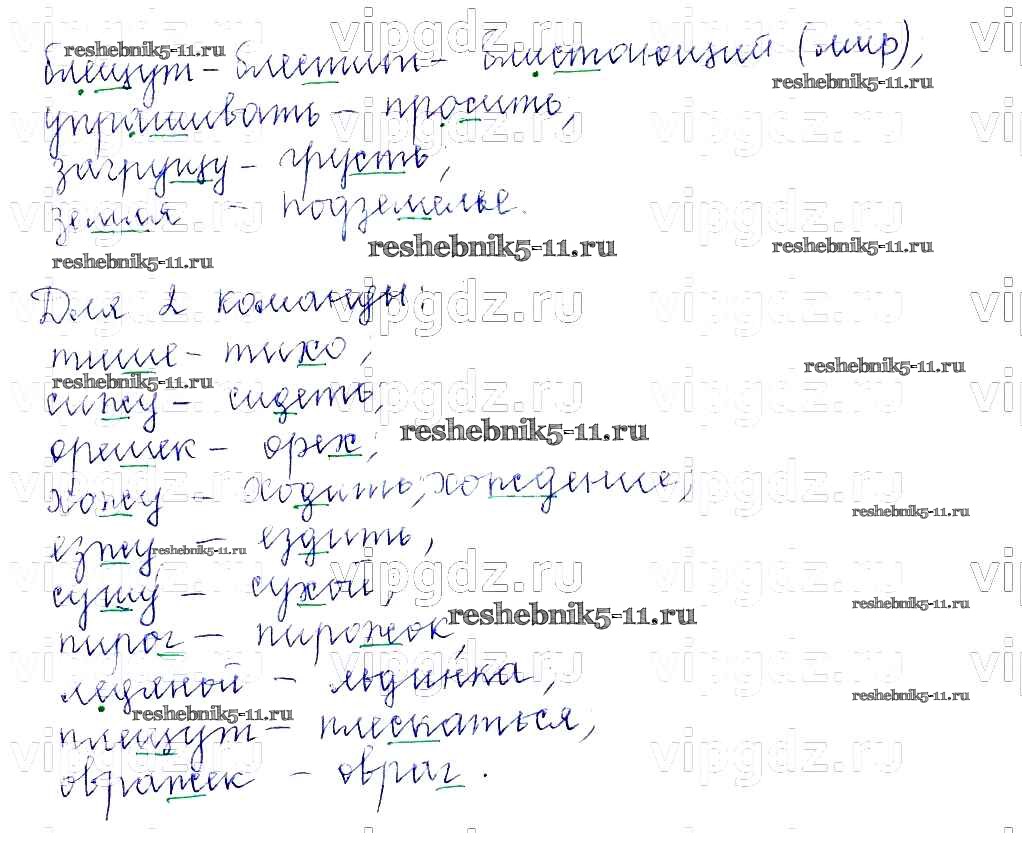 блещут - блестит - блистающий (мир),
упрашивать - просить,
загрущу - грусть,
земля - подземелье.
Для 2 команды:
тише - тихо,
сижу - сидеть,
орешек - орех,
хожу - ходить, хождение,
езжу, - ездить,
сушу - сухой,
пирог - пирожок,
ледяной - льдинка,
плещут - плескаться,
овражек - овраг.